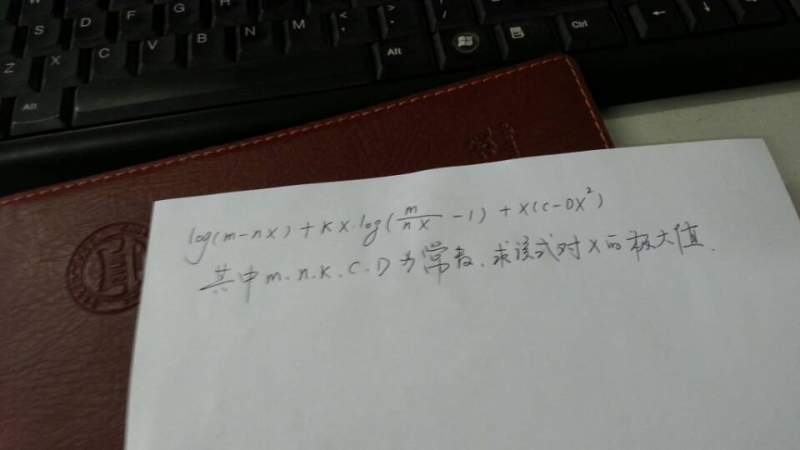 W
S D F G H
Z X C V B N M < , > .
Alt Alt Ctrl
log(m-nx)+kx·log(m/nx -1)+x(c-Dx²)
其中m.n.k.c.D为常数.求该式对x的极大值.